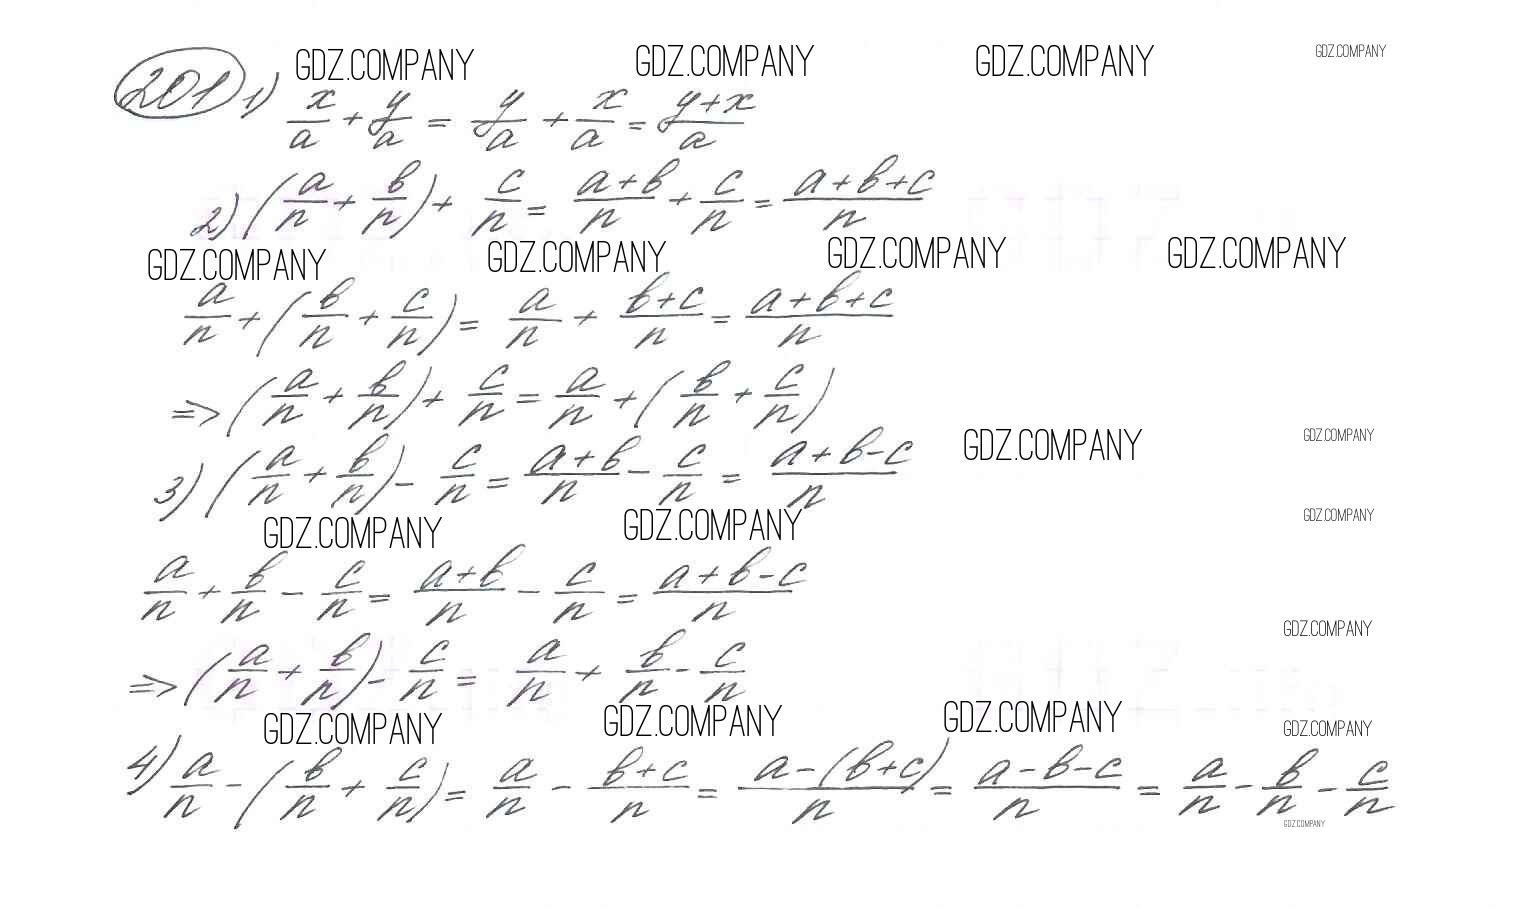 GDZ.COMPANY GDZ.COMPANY GDZ.COMPANY GDZ.COMPANY
201 1) x/a + y/a = y/a + x/a = (y+x)/a
2) (a/n + b/n) + c/n = (a+b)/n + c/n = (a+b+c)/n
GDZ.COMPANY GDZ.COMPANY GDZ.COMPANY GDZ.COMPANY
a/n + (b/n + c/n) = a/n + (b+c)/n = (a+b+c)/n
=> (a/n + b/n) + c/n = a/n + (b/n + c/n)
GDZ.COMPANY GDZ.COMPANY
3) (a/n + b/n) - c/n = (a+b)/n - c/n = (a+b-c)/n
GDZ.COMPANY GDZ.COMPANY GDZ.COMPANY
a/n + b/n - c/n = (a+b)/n - c/n = (a+b-c)/n
GDZ.COMPANY
=> (a/n + b/n) - c/n = a/n + b/n - c/n
GDZ.COMPANY GDZ.COMPANY GDZ.COMPANY GDZ.COMPANY
4) a/n - (b/n + c/n) = a/n - (b+c)/n = (a-(b+c))/n = (a-b-c)/n = a/n - b/n - c/n
GDZ.COMPANY